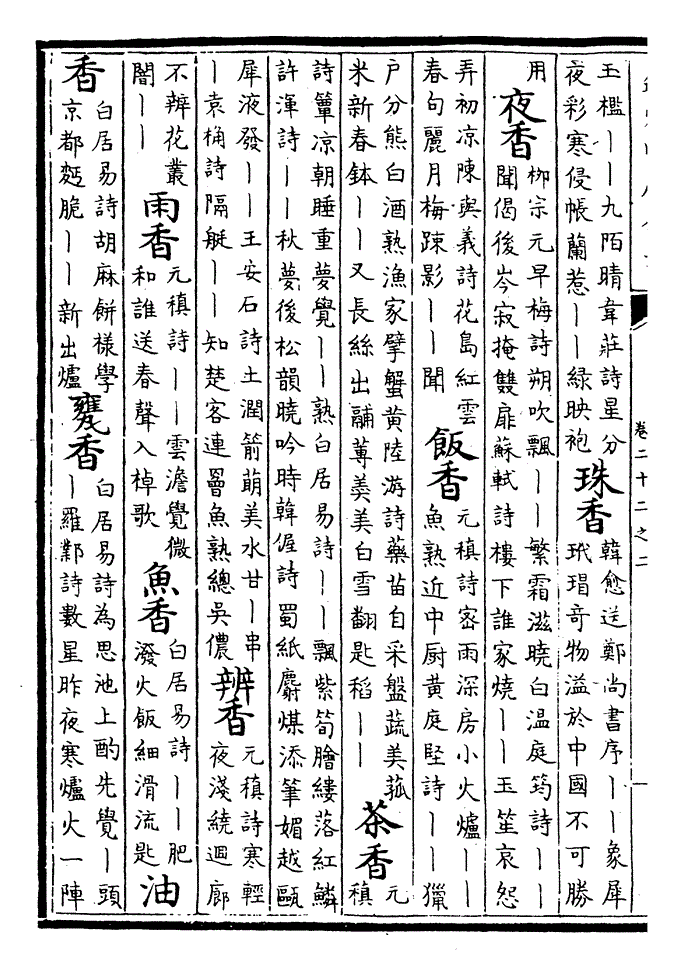 玉檻丨丨九陌晴韋莊詩星分
夜彩寒侵帳蘭惹丨丨緑映袍
珠香
韓愈送鄭尚書序丨丨象犀
玳瑁奇物溢於中國不可勝
用
夜香
柳宗元早梅詩朔吹飄丨丨繁霜滋曉白温庭筠詩丨丨
聞偈後岑寂掩雙扉蘇軾詩樓下誰家燒丨丨玉笙哀怨
弄初凉陳與義詩花島紅雲
春句麗月梅踈影丨丨聞
飯香
元稹詩宻雨深房小火爐丨丨
魚熟近中厨黄庭堅詩丨丨獵
戸分熊白酒熟漁家擘蟹黄陸游詩藥苗自采盤蔬美菰
米新春鉢丨丨又長絲出鬴蓴羮美白雪翻匙稻丨丨
茶香
元
稹
詩簟凉朝睡重夢覺丨丨熟白居易詩丨丨飄紫筍膾縷落紅鱗
許渾詩丨丨秋夢後松韻曉吟時韓偓詩蜀紙麝煤添筆媚越甌
犀液發丨丨王安石詩土潤箭萌美水甘丨串
丨袁桷詩隔艇丨丨知楚客連罾魚熟總吳儂
辨香
元稹詩寒輕
夜淺繞迴廊
不辨花叢
闇丨丨
雨香
元稹詩丨丨雲澹覺微
和誰送春聲入棹歌
魚香
白居易詩丨丨肥
潑火飯細滑流匙
油
香
白居易詩胡麻餅樣學
京都麫脆丨丨新出爐
甕香
白居易詩為思池上酌先覺丨頭
丨羅鄴詩數星昨夜寒爐火一陣
卷二十二之二
一